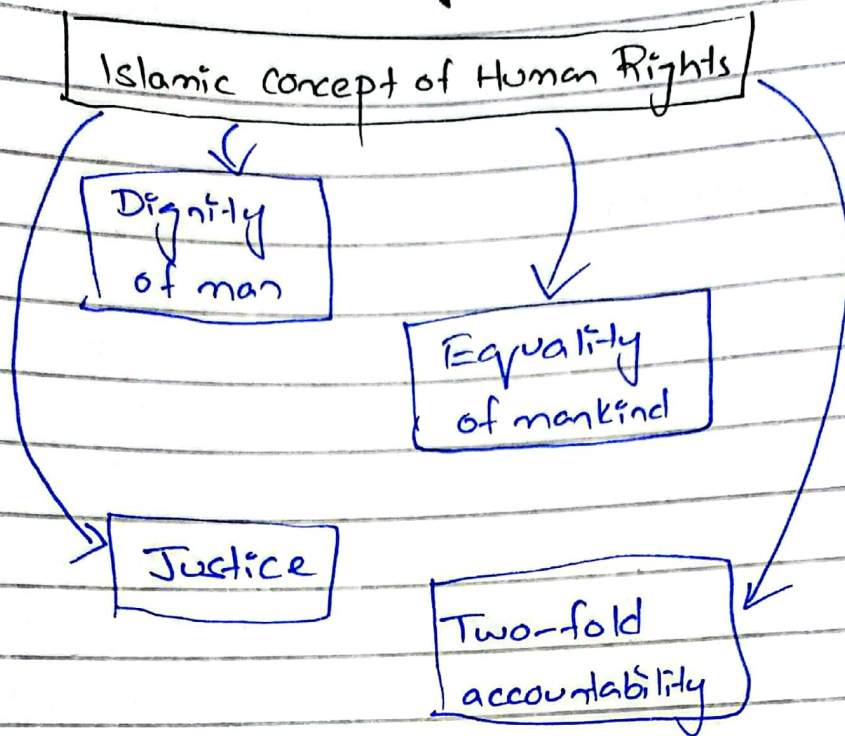 Islamic concept of Human Rights
Dignity
of man
Equality
of mankind
Justice
Two-fold
accountability